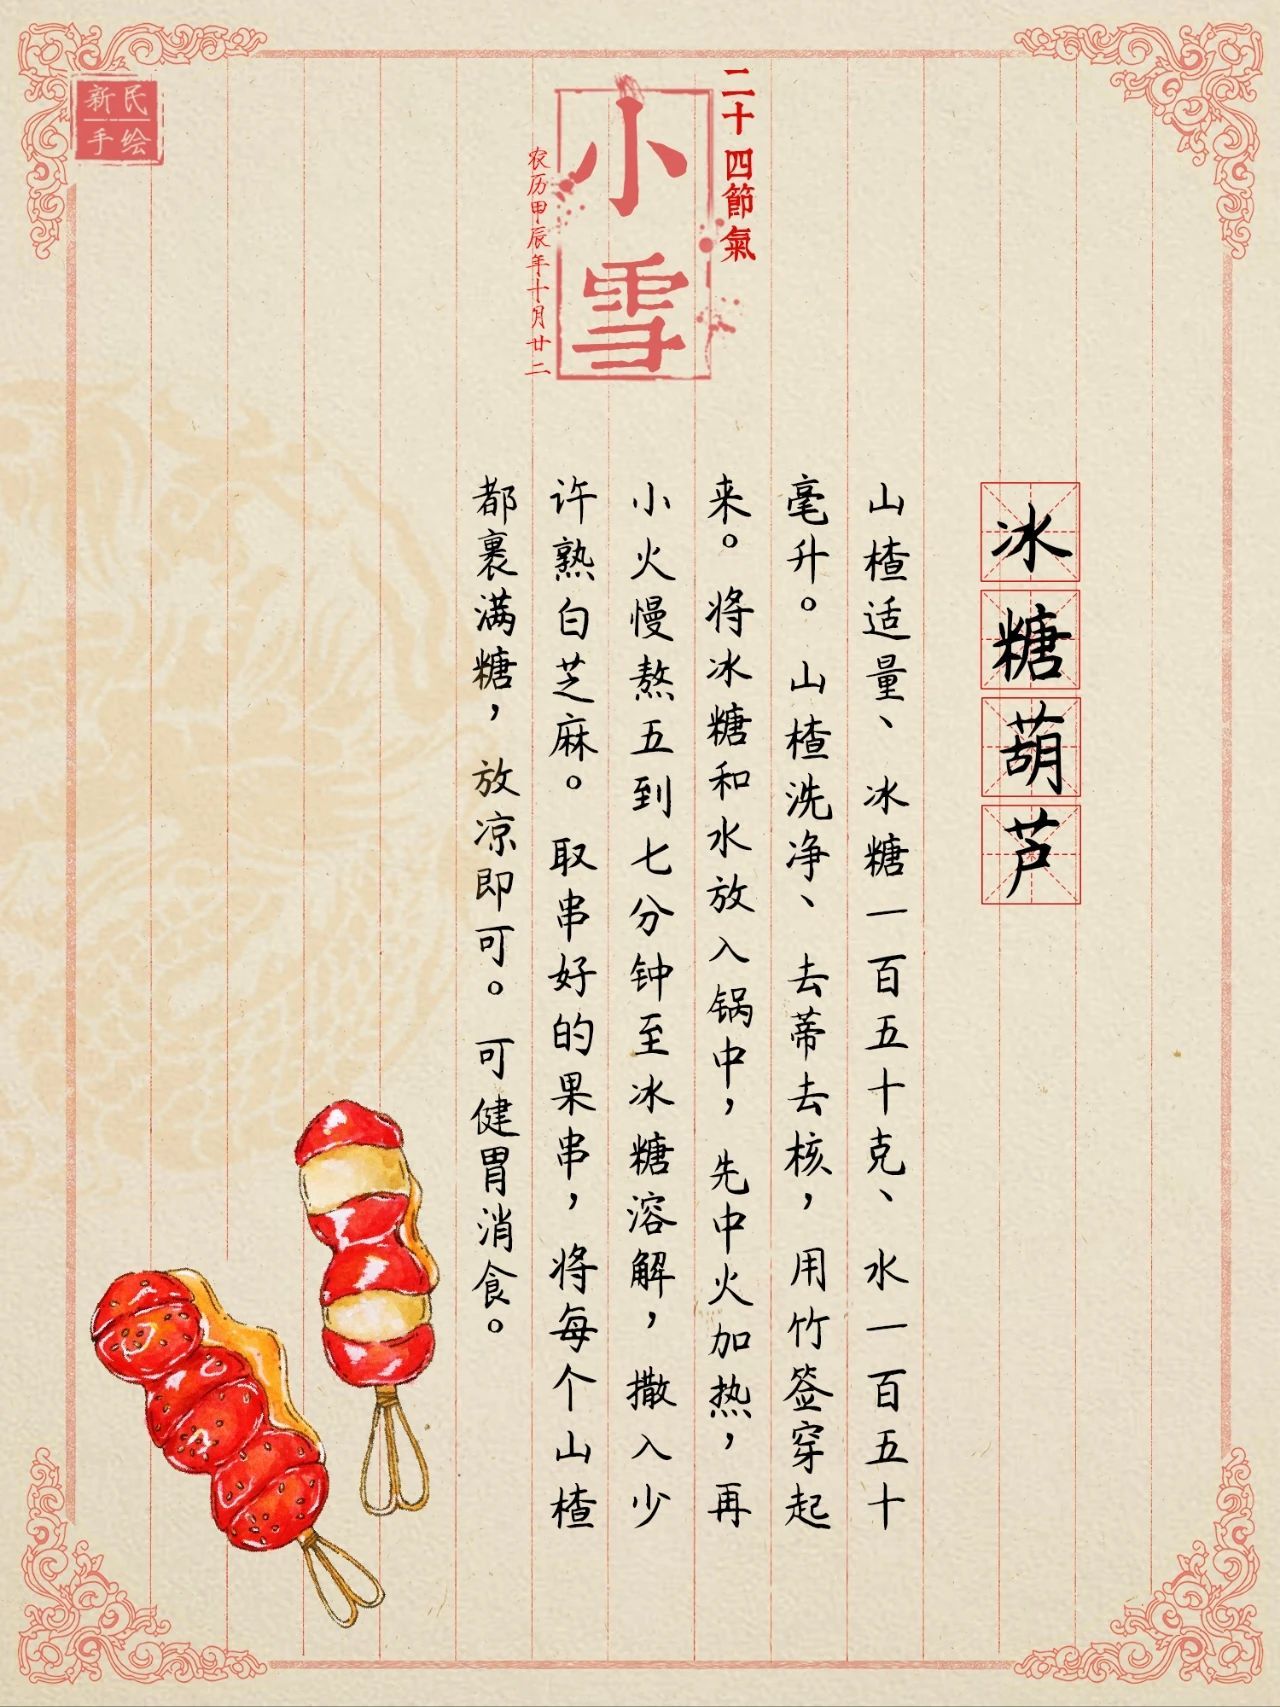 新民
手绘
二十四節氣
小雪
农历甲辰年十月廿二
冰糖葫芦
山楂适量、冰糖一百五十克、水一百五十
毫升。山楂洗净、去蒂去核，用竹签穿起
来。将冰糖和水放入锅中，先中火加热，再
小火慢熬五到七分钟至冰糖溶解，撒入少
许熟白芝麻。取串好的果串，将每个山楂
都裹满糖，放凉即可。可健胃消食。